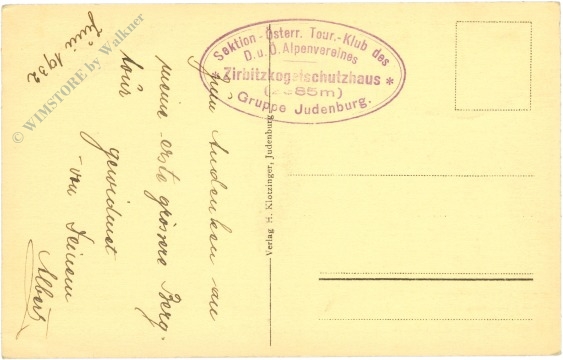 Juni 1932
zum Andenken an
meine erste grössere Berg-
tour
gewidmet
- von Deinem
Albert
Sektion-Österr. Tour.-Klub des
D. u. Ö. Alpenvereines
* Zirbitzkogelschutzhaus *
Gruppe Judenburg.
Verlag H. Klotzinger, Judenburg
© WIMSTORE by Walkner